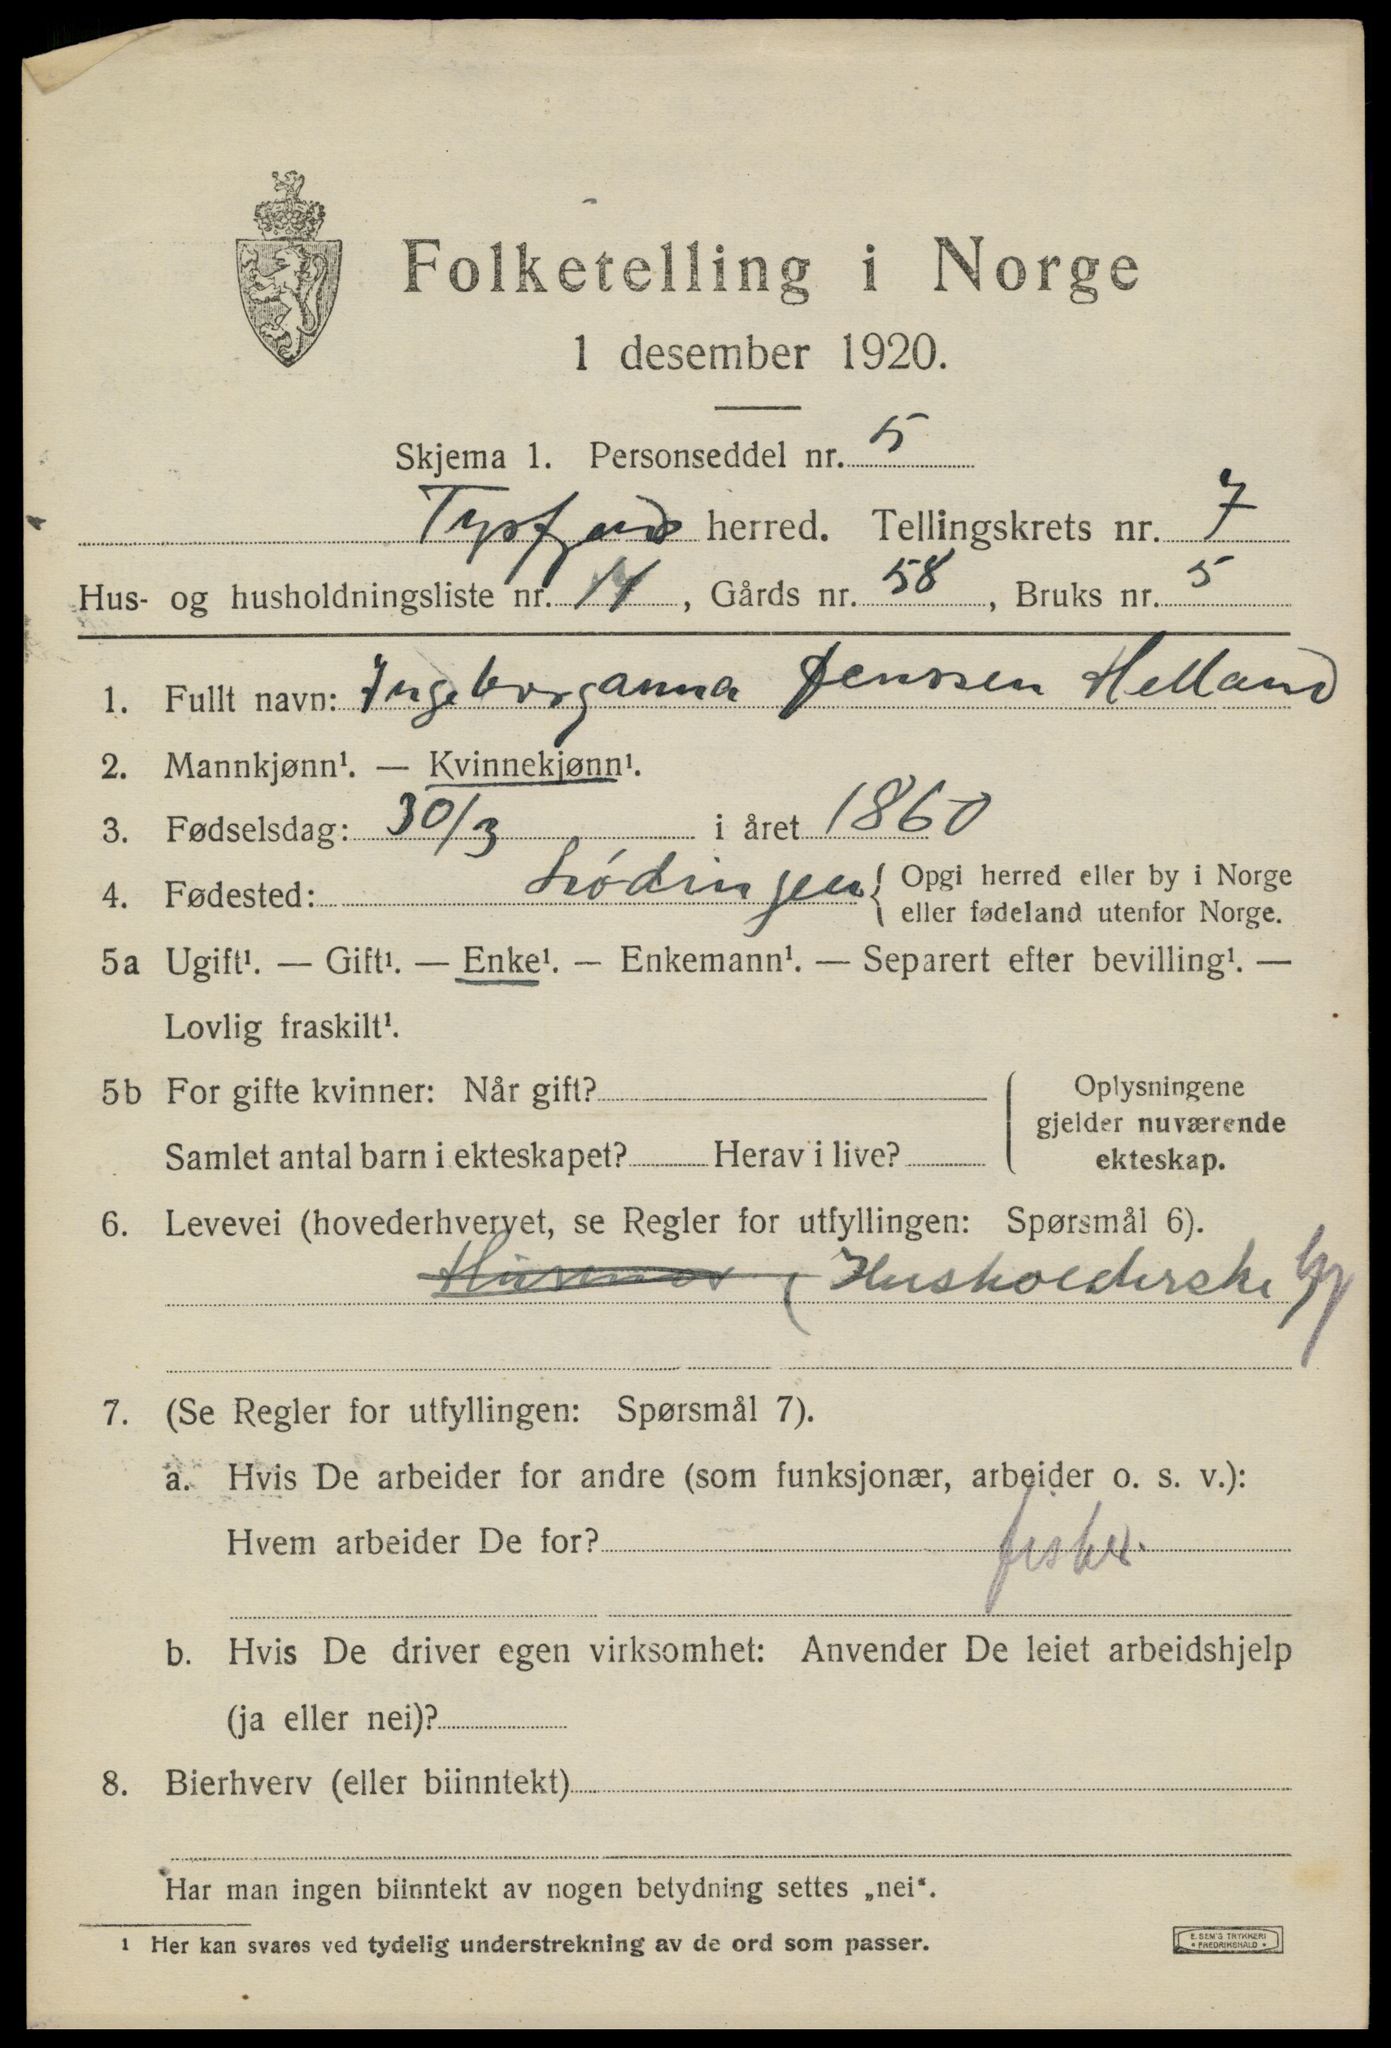 Folketelling i Norge
1 desember 1920.
Skjema 1. Personseddel nr. 5
Tysfjord herred. Tellingskrets nr. 7
Hus- og husholdningsliste nr. 14, Gårds nr. 58, Bruks nr. 5
1. Fullt navn: Ingeborganna Jenssen Helland
2. Mannkjønn¹. — Kvinnekjønn¹.
3. Fødselsdag: 30/3 i året 1860
4. Fødested: Lødingen { Opgi herred eller by i Norge
eller fødeland utenfor Norge.
5a Ugift¹. — Gift¹. — Enke¹. — Enkemann¹. — Separert efter bevilling¹. —
Lovlig fraskilt¹.
5b For gifte kvinner: Når gift?
Samlet antal barn i ekteskapet? Herav i live?
Oplysningene
gjelder nuværende
ekteskap.
6. Levevei (hovederhvervet, se Regler for utfyllingen: Spørsmål 6).
Husholderske
7. (Se Regler for utfyllingen: Spørsmål 7).
a. Hvis De arbeider for andre (som funksjonær, arbeider o. s. v.):
Hvem arbeider De for? fisker.
b. Hvis De driver egen virksomhet: Anvender De leiet arbeidshjelp
(ja eller nei)?
8. Bierhverv (eller biinntekt)
Har man ingen biinntekt av nogen betydning settes „nei“.
¹ Her kan svares ved tydelig understrekning av de ord som passer.
E. SEM'S TRYKKERI
• FREDRIKSHALD •